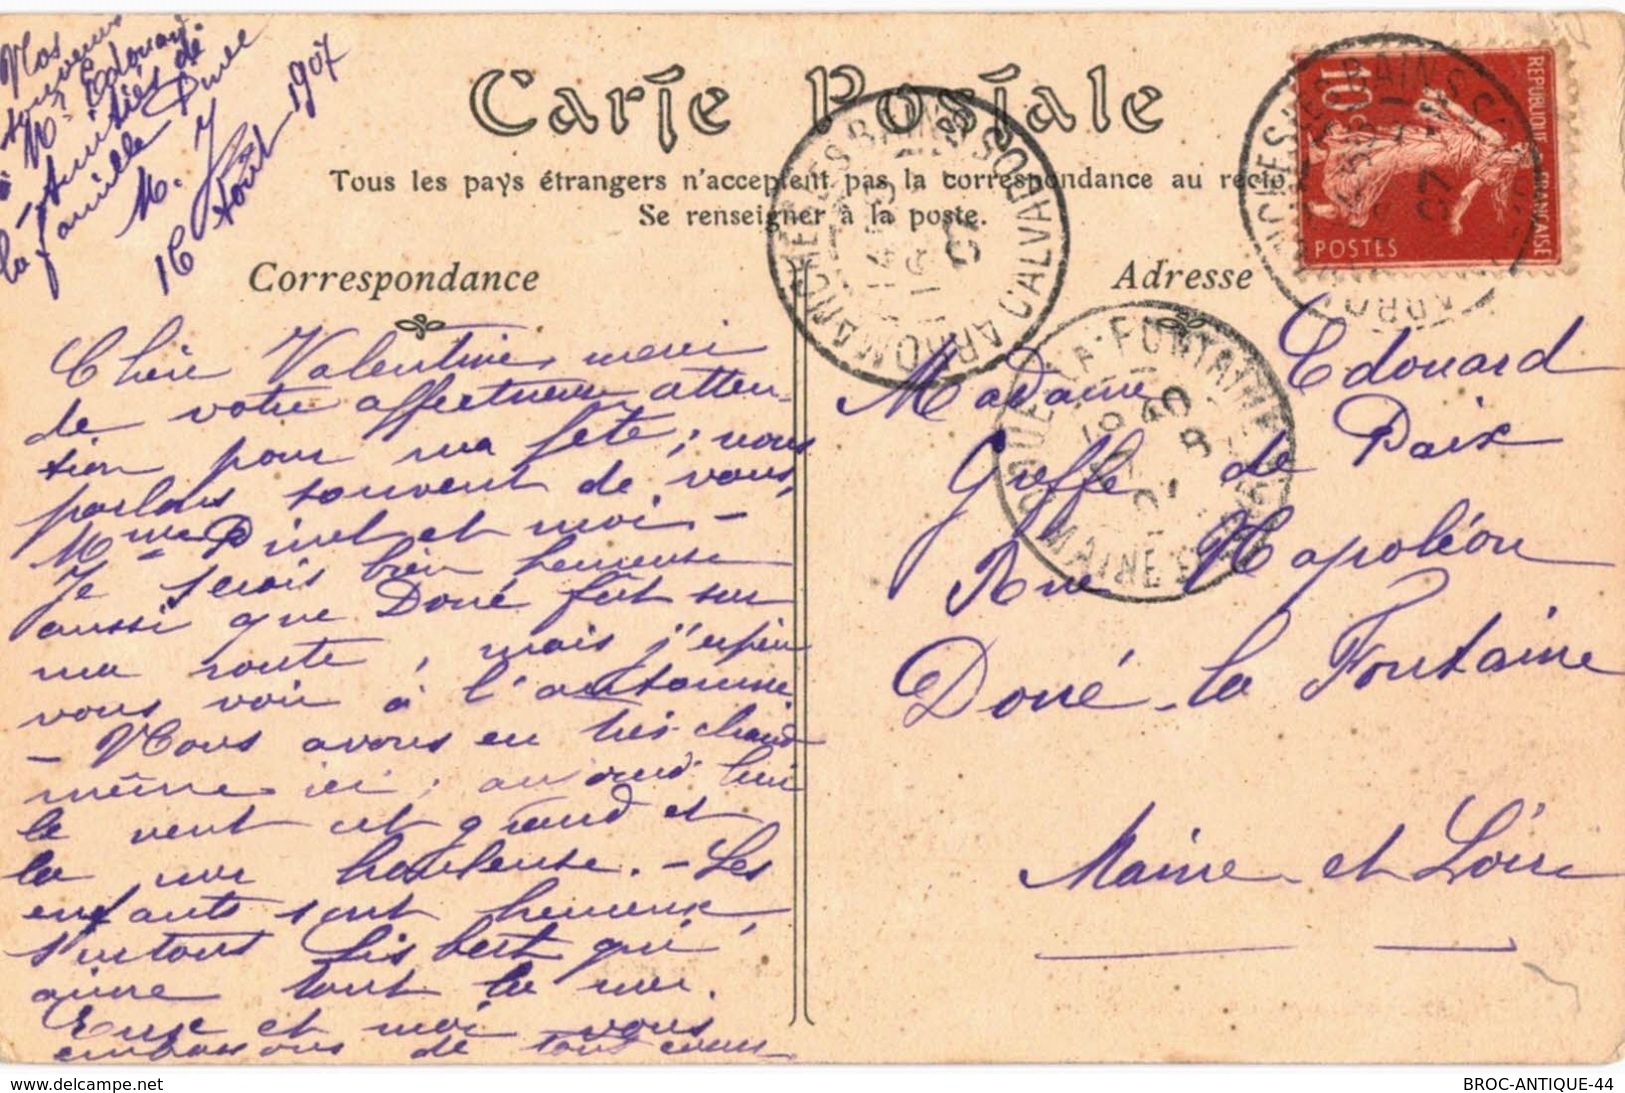 Nos
souvenirs
à Mr Edouard
Amitiés de
la famille Pinel
M. J.
16 Août 1907
Carte Postale
Tous les pays étrangers n'acceptent pas la correspondance au recto
Se renseigner à la poste.
Correspondance
Chère Valentine, merci
de votre affectueuse atten-
tion pour ma fête ; nous
parlons souvent de vous,
Mme Pinel et moi -
Je serais bien heureuse
aussi que Doué fût sur
ma route, mais j'espère
vous voir à l'automne
- Nous avons eu très chaud
même ici ; aujourd'hui
le vent est grand et
la mer houleuse. - Les
enfants sont heureux,
surtout Lisbeth qui
aime tout la mer.
Eux et moi vous
embrassons de tout coeur
Adresse
Madame Edouard
Greffe de Paix
Rue Napoléon
Doué-la Fontaine
Maine et Loire
REPUBLIQUE FRANÇAISE
10c
POSTES
ARROMANCHES-LES-BAINS
CALVADOS
DOUÉ-LA-FONTAINE
MAINE ET LOIRE
www.delcampe.net
BROC-ANTIQUE-44